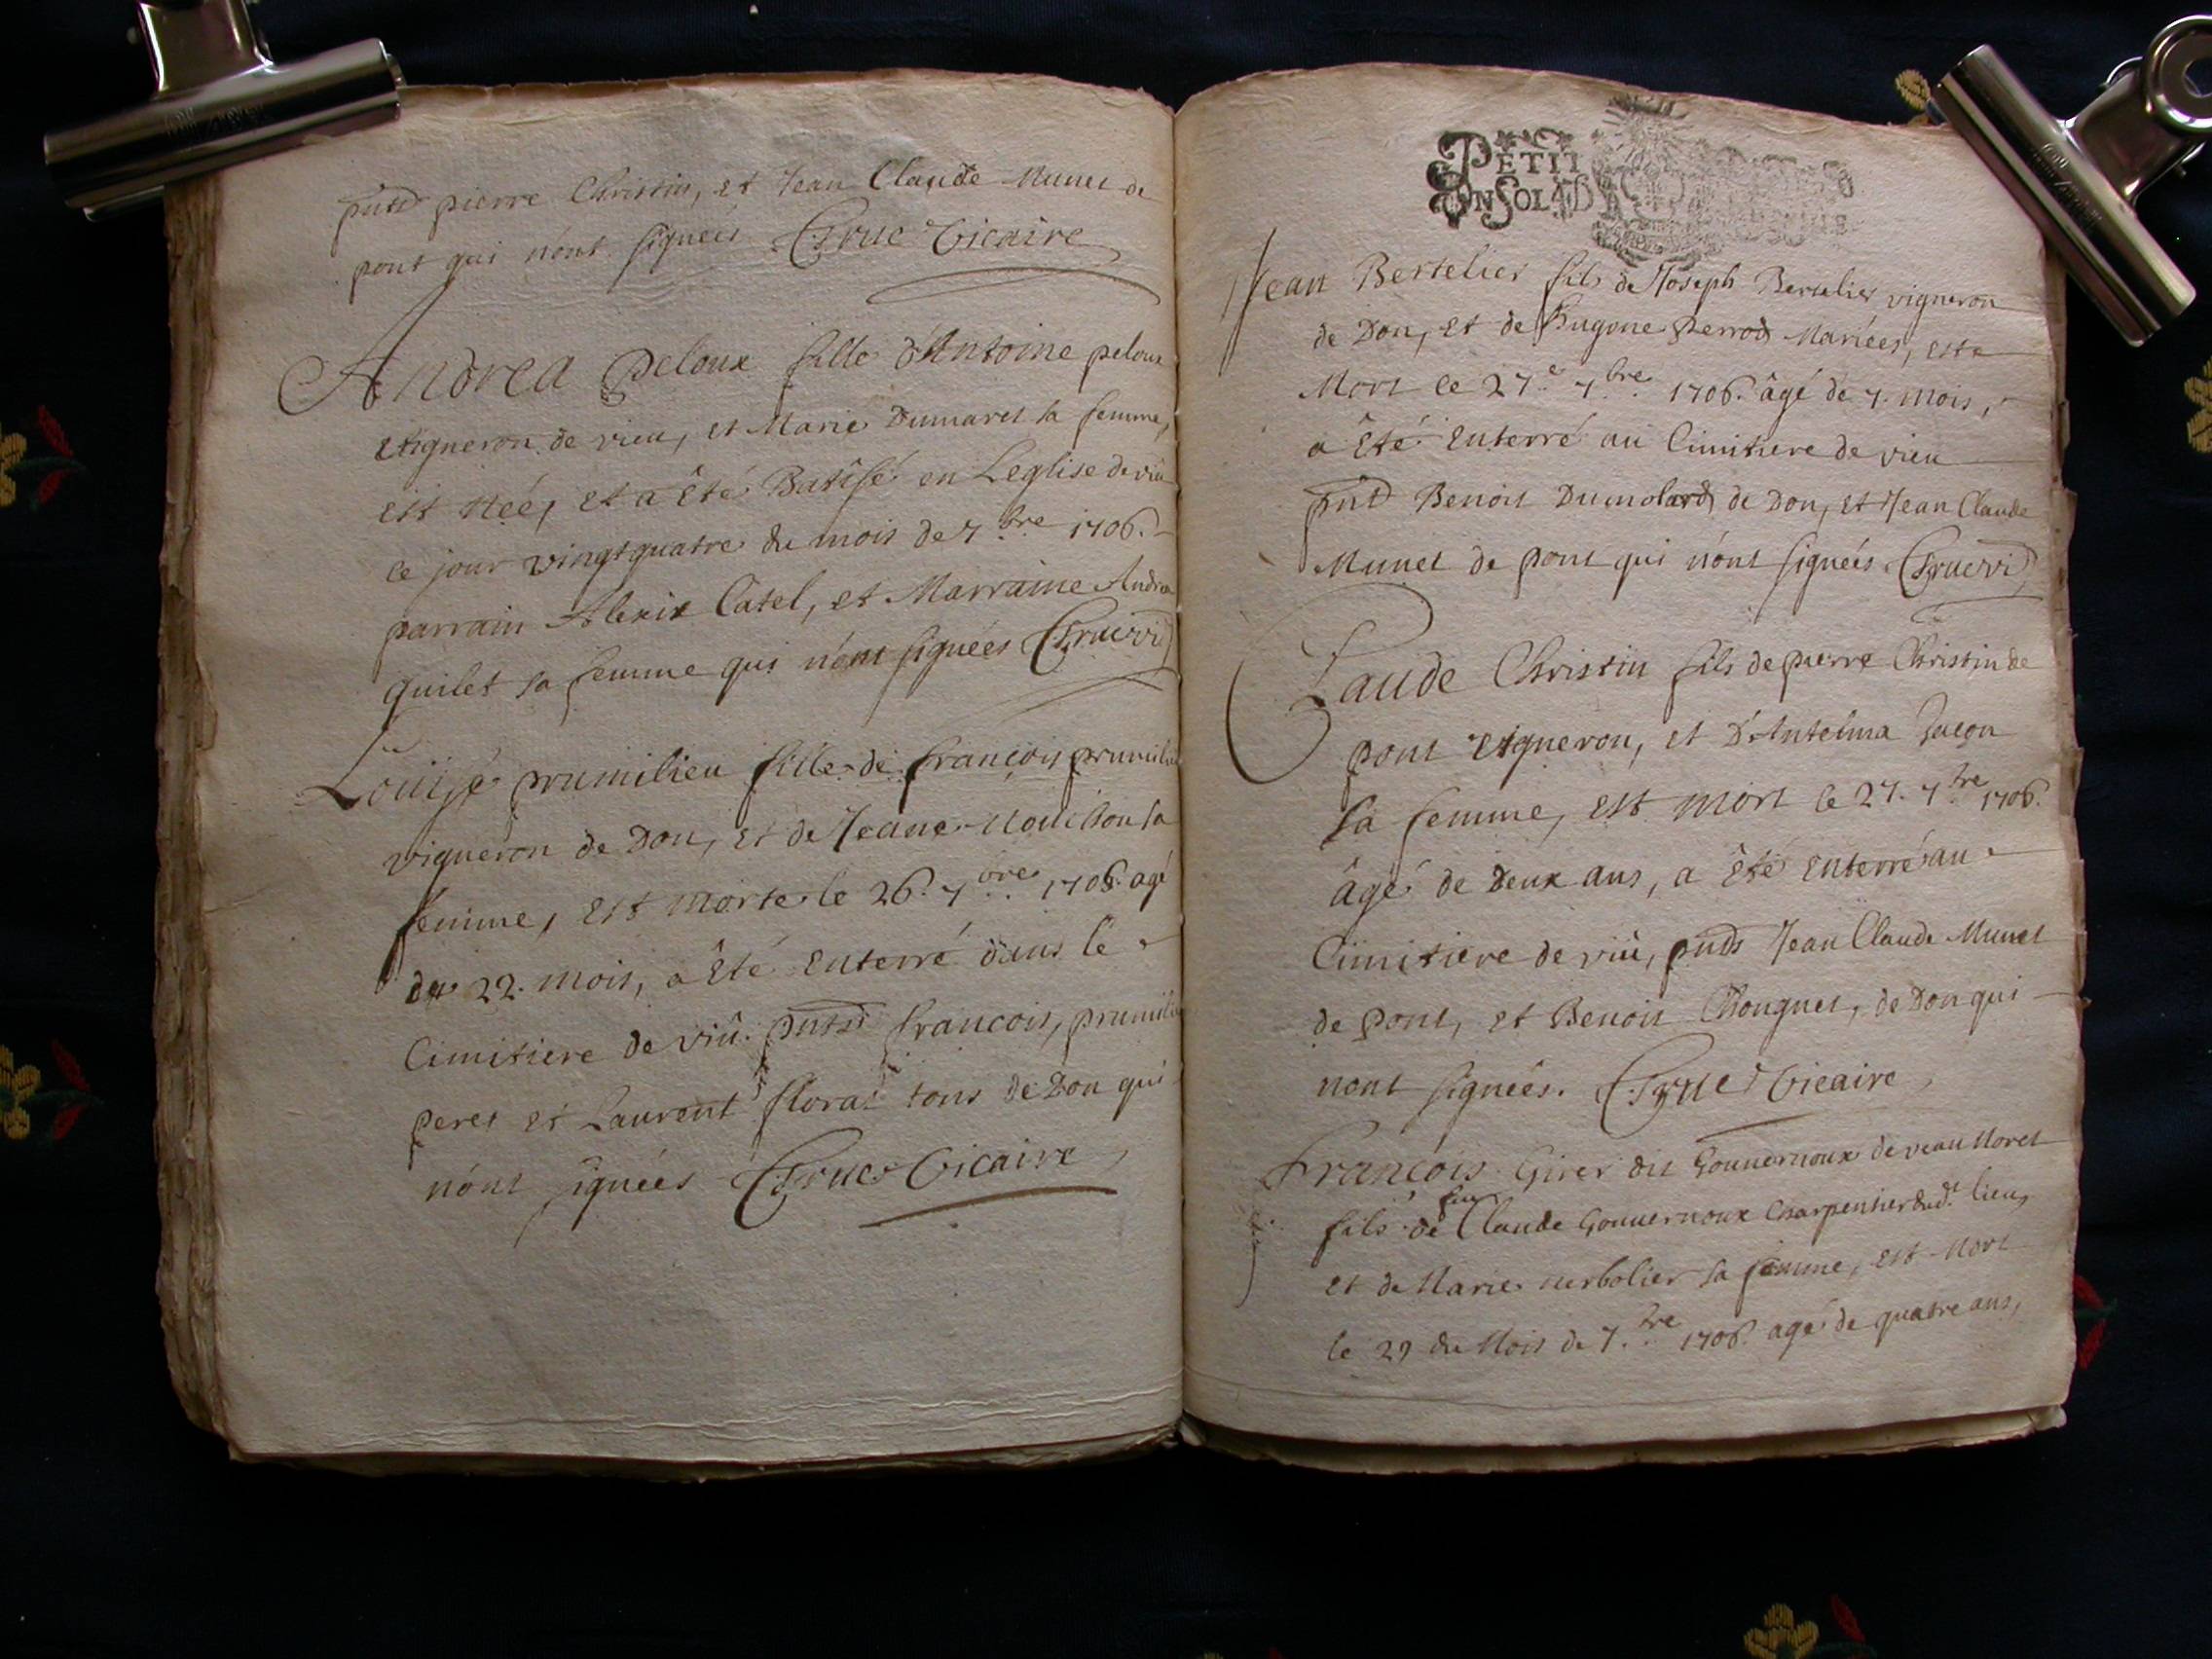 pntd pierre Christin, et Jean Claude Munet de
pont qui n'ont signeés Gruc Vicaire
Andrea peloux fille d'Antoine peloux
vigneron de vieu, et Marie Dumaret sa femme,
est Neé, et a êté Batisé en Leglise de viû
ce jour vingtquatre du mois de 7.bre 1706.
parrain Alexix Catel, et Marraine Andrea
quilet sa femme qui n'ont signées
Louise prumilieu fille de françois prumilieu
vigneron de Don, et de Jeane sa
femme, est morte le 26. 7.bre 1706. agé
de 22. mois, a êté enterré dans le
Cimitiere de viû. pntsd francois, prumilieu
peres et Laurent floraz tous de Don qui
n'ont signées Gruc Vicaire
PETIT
UN SOL
Jean Bertelier fils de Joseph Bertelier vigneron
de Don, et de Hugone perrod Mariées, est
Mort le 27.e 7.bre 1706. âgé de 7. mois,
a êté enterré au Cimitiere de vieu
pntd Benoit Dumolard de Don, et Jean Claude
Munet de pont qui n'ont signeés
Claude Christin fils de pierre Christin de
pont vigneron, et D'Antelma Juçon
sa femme, est mort le 27. 7.bre 1706.
âgé de deux ans, a êté enterré au
Cimitiere de viû, pntds Jean Claude Munet
de pont, et Benoit Chongnet, de Don qui
nont signeés. Gruc Vicaire
François Girer dit Gouvernoux de veau Moret
fils de feu Claude Gouvernoux Charpentier dud.t lieu,
et de Marie sa femme, est Mort
le 29 du Mois de 7.bre 1706. agé de quatre ans,